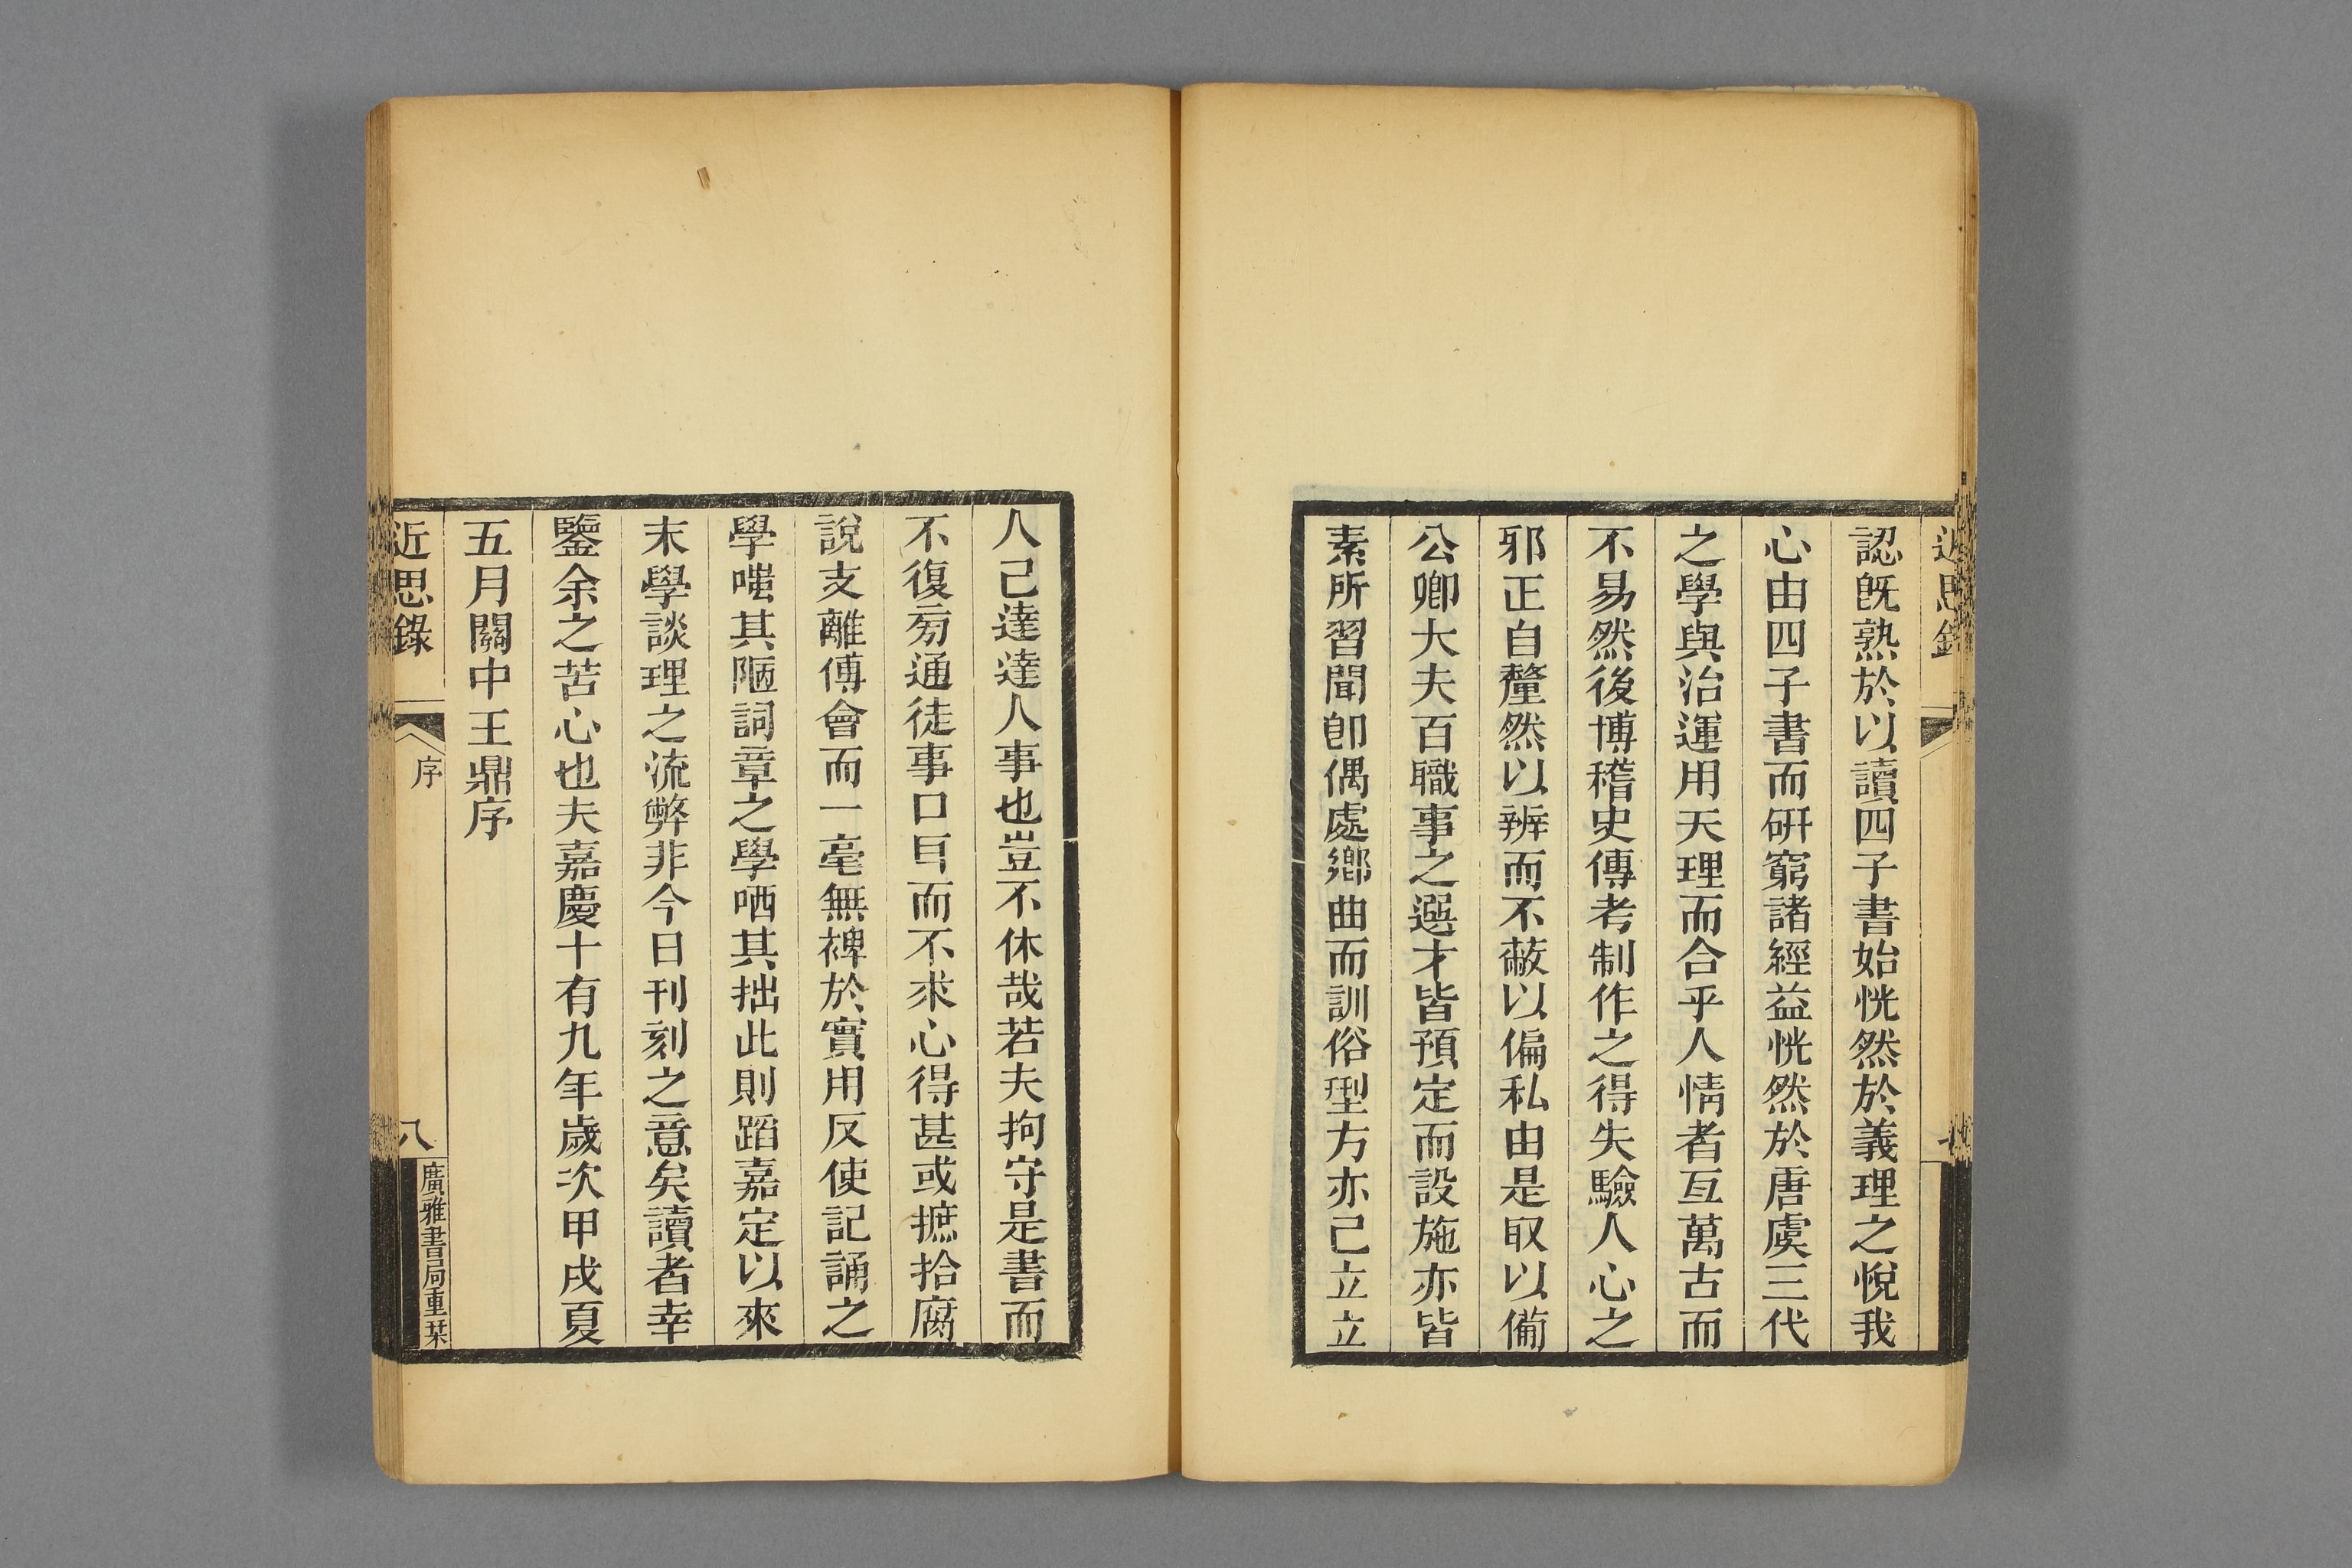 認旣熟於以讀四子書始恍然於義理之悅我
心由四子書而硏窮諸經益恍然於唐虞三代
之學與治運用天理而合乎人情者亙萬古而
不易然後博稽史傳考制作之得失驗人心之
邪正自釐然以辨而不蔽以偏私由是取以備
公卿大夫百職事之選才皆預定而設施亦皆
素所習聞卽偶處鄉曲而訓俗型方亦己立立
人己達達人事也豈不休哉若夫拘守是書而
不復旁通徒事口耳而不求心得甚或摭拾腐
說支離傅會而一毫無裨於實用反使記誦之
學嗤其陋詞章之學哂其拙此則蹈嘉定以來
末學談理之流弊非今日刊刻之意矣讀者幸
鑒余之苦心也夫嘉慶十有九年歲次甲戌夏
五月關中王鼎序
近思錄
序
八
廣雅書局重栞